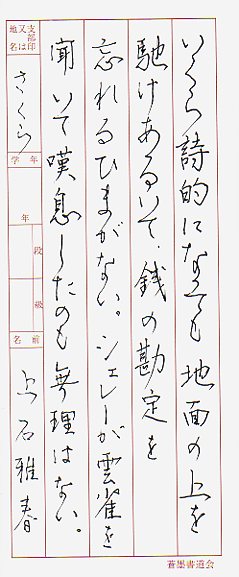 いくら詩的になっても地面の上を
馳けあるいて、銭の勘定を
忘れるひまがない。シェレーが雲雀を
聞いて嘆息したのも無理はない。
支部印又は地名
さくら
学年
年
段
級
名前
上石雅春
蒼墨書道会